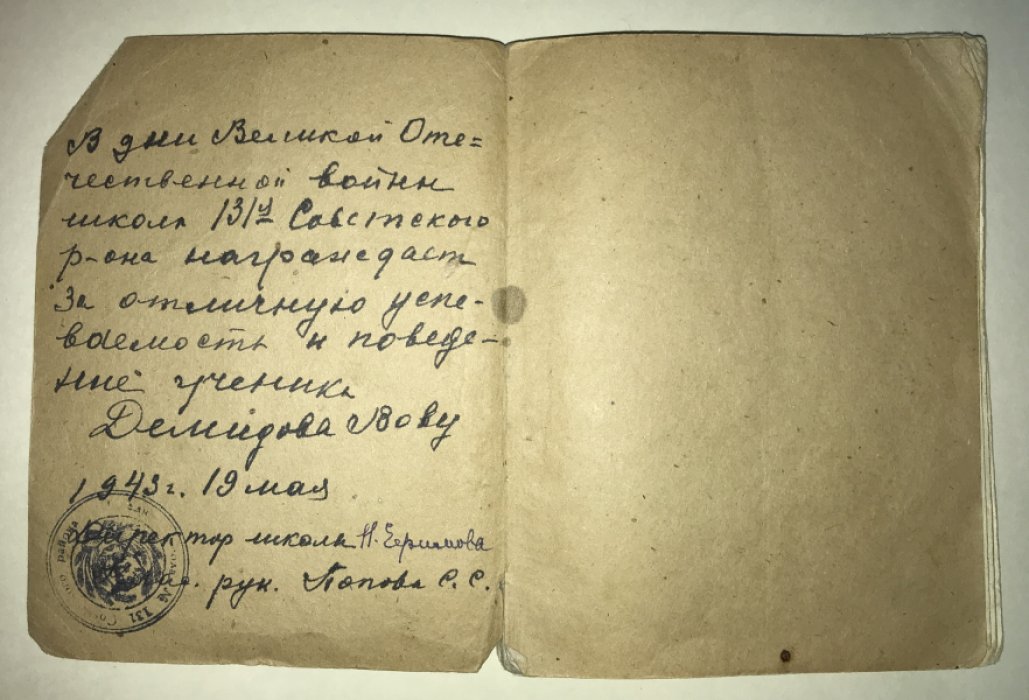 В дни Великой Оте=
чественной войны
школа 131я Советского
р-она награждает
за отличную успе-
ваемость и поведе-
ние ученика
Демидова Вову
1943г. 19 мая
Директор школы
рук. Попова С. С.
района
№ 131